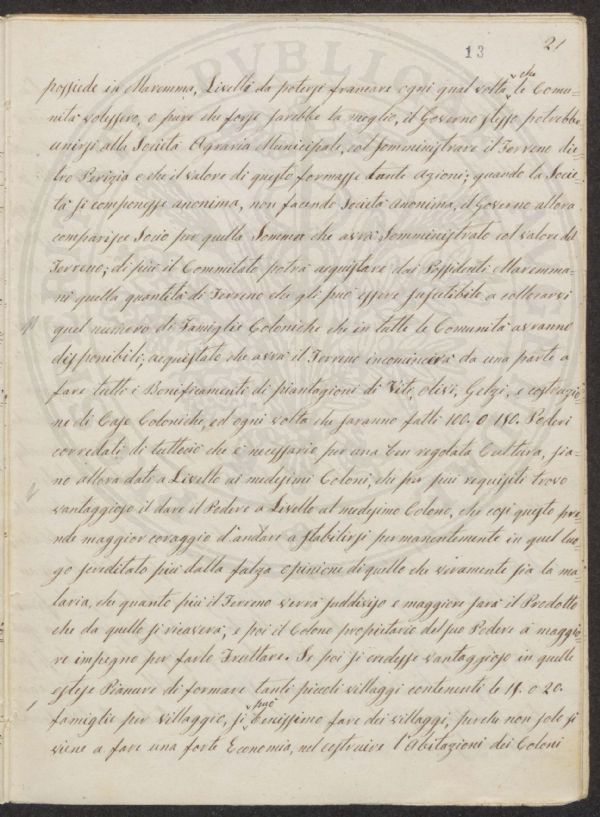 13
21
possiede in Maremma, Livelli da potersi francare ogni qual volta che le Comu-
nità volessero, o pure che forse sarebbe la meglio, il Governo stesso potrebbe
unirsi alla Società Agraria Municipale, col somministrare il Terreno die-
tro Perizia e che il valore di questo formasse tante azioni; quando la Socie-
tà si componesse anonima, non facendo Società anonima, il Governo allora
comparisce Socio per quella Somma che avrà somministrato col valore del
Terreno; di più il Commitato potrà acquistare dai Possidenti Maremma-
ni quella quantità di Terreno che gli può essere suscetibile a collocarvi
quel numero di Famiglie Coloniche che in tutte le Comunità avranno
disponibili; acquistato che avrà il Terreno incomincerà da una parte a
fare tutti i Bonificamenti di piantagioni di Vite, olivi, Gelzi, e costruzio-
ne di Case Coloniche, ed ogni volta che saranno fatti 100. o 150. Poderi
corredati di tuttociò che è necessario per una ben regolata Cultura, sia-
no allora dati a Livello ai medesimi Coloni, che per più requisiti trovo
vantaggioso il dare il Podere a Livello al medesimo Colono, che così questo pre-
nde maggior coraggio d'andare a stabilirsi permanentemente in quel luo-
go screditato più dalla falza opinione di quello che veramente sia la ma-
laria, che quanto più il Terreno verrà suddiviso e maggiore sarà il Prodotto
che da quello si ricaverà, e poi il Colono proprietario del suo Podere à maggio-
re impegno per farlo Fruttare. Se poi si credesse vantaggioso in quelle
estese Pianure di formare tanti piccoli villaggi contenenti le 15. o 20.
famiglie per villaggio, si può benissimo fare dei villaggi, perchè non solo si
viene a fare una forte Economia, nel costruire l'Abitazioni dei Coloni